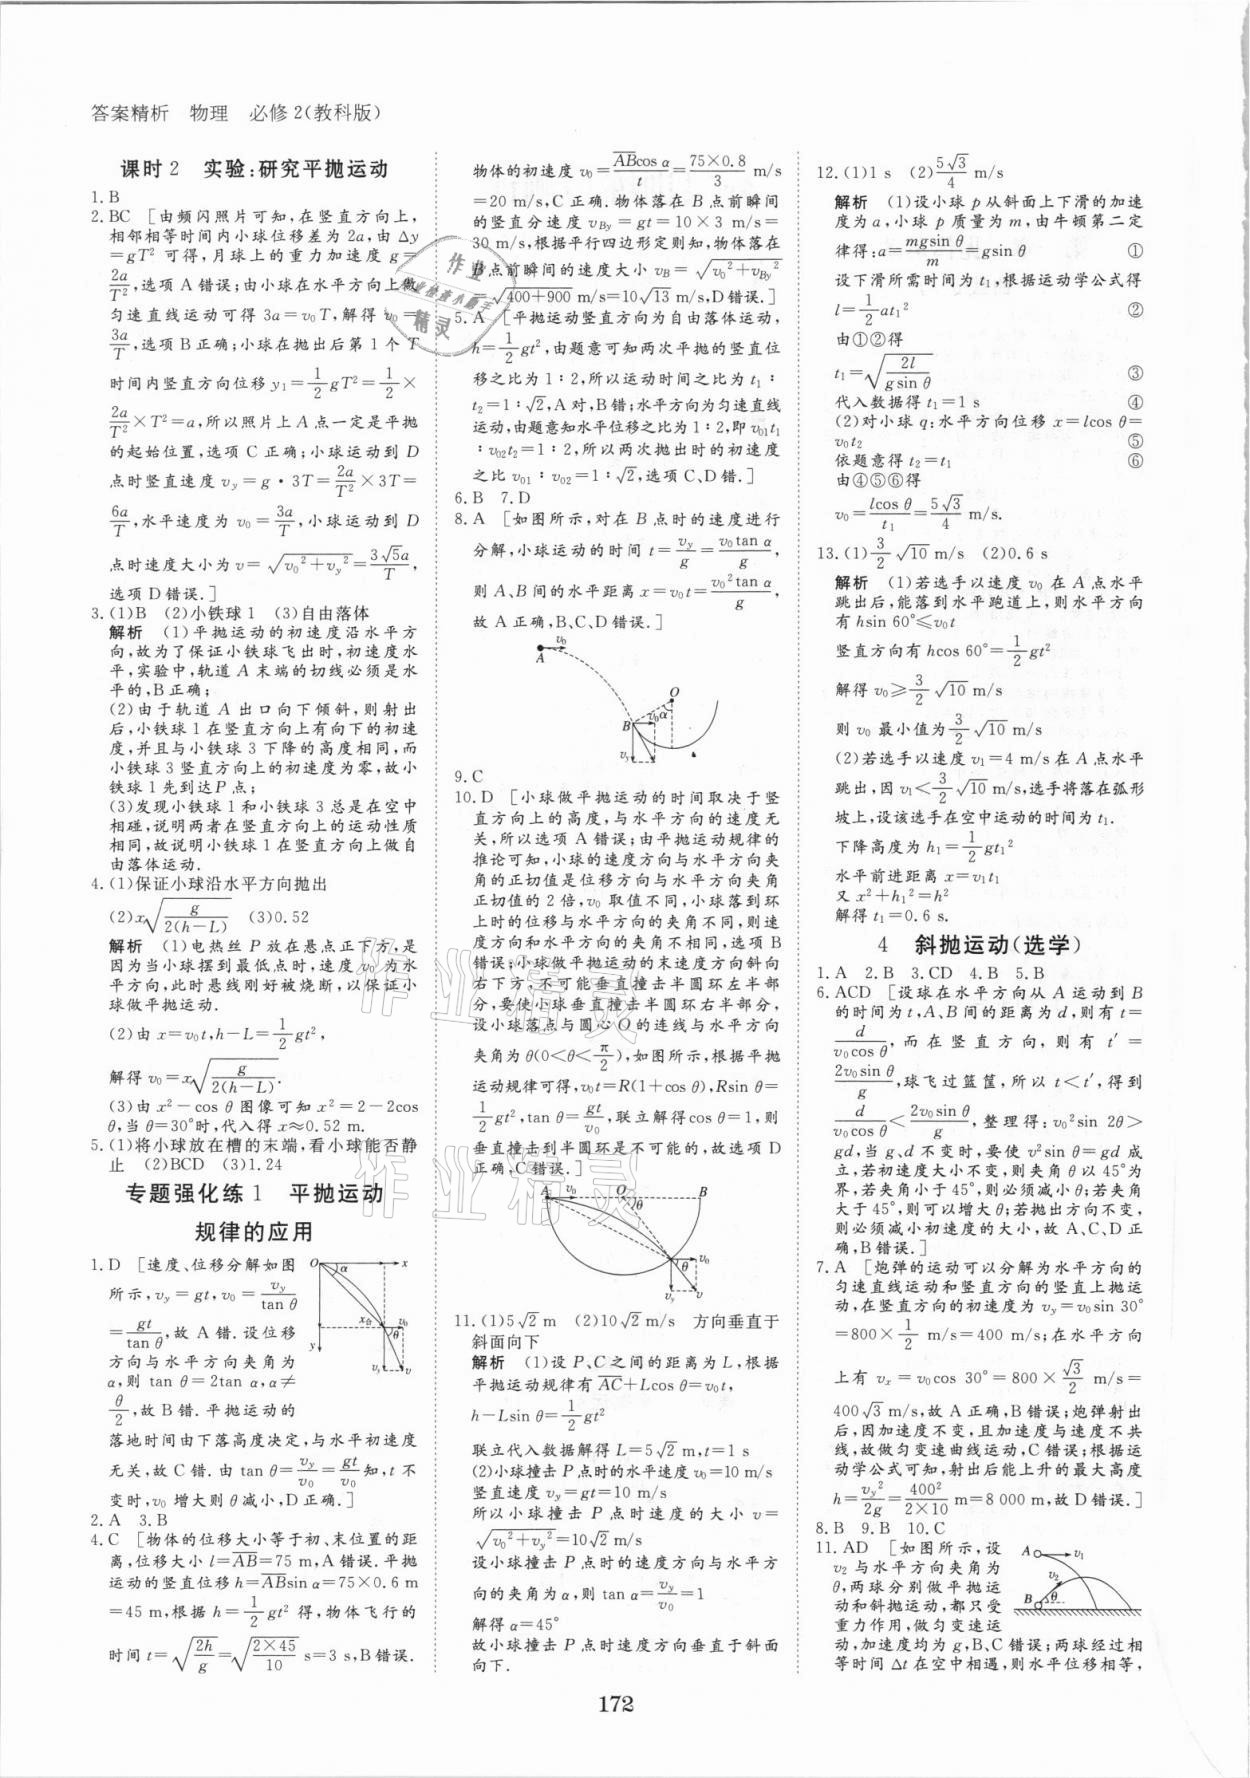 答案精析 物理 必修2(教科版)
课时2 实验:研究平抛运动
1.B
2.BC [由频闪照片可知,在竖直方向上,
相邻相等时间内小球位移差为2a,由Δy
=gT²可得,月球上的重力加速度g=
2a/T²,选项A错误;由小球在水平方向上做
匀速直线运动可得3a=v₀T,解得v₀=
3a/T,选项B正确;小球在抛出后第1个T
时间内竖直方向位移y₁=1/2gT²=1/2×
2a/T²×T²=a,所以照片上A点一定是平抛
的起始位置,选项C正确;小球运动到D
点时竖直速度v_y=g·3T=2a/T²×3T=
6a/T,水平速度为v₀=3a/T,小球运动到D
点时速度大小为v=√(v₀²+v_y²)=3√5a/T,
选项D错误.]
3.(1)B (2)小铁球1 (3)自由落体
解析 (1)平抛运动的初速度沿水平方
向,故为了保证小铁球飞出时,初速度水
平,实验中,轨道A末端的切线必须是水
平的,B正确;
(2)由于轨道A出口向下倾斜,则射出
后,小铁球1在竖直方向上有向下的初速
度,并且与小铁球3下降的高度相同,而
小铁球3竖直方向上的初速度为零,故小
铁球1先到达P点;
(3)发现小铁球1和小铁球3总是在空中
相碰,说明两者在竖直方向上的运动性质
相同,故说明小铁球1在竖直方向上做自
由落体运动.
4.(1)保证小球沿水平方向抛出
(2)x√(g/2(h-L)) (3)0.52
解析 (1)电热丝P放在悬点正下方,是
因为当小球摆到最低点时,速度v₀为水
平方向,此时悬线刚好被烧断,以保证小
球做平抛运动.
(2)由x=v₀t,h-L=1/2gt²,
解得v₀=x√(g/2(h-L)).
(3)由x²-cos θ图像可知x²=2-2cos
θ,当θ=30°时,代入得x≈0.52 m.
5.(1)将小球放在槽的末端,看小球能否静
止 (2)BCD (3)1.24
专题强化练1 平抛运动
规律的应用
1.D [速度、位移分解如图
所示,v_y=gt,v₀=v_y/tan θ
=gt/tan θ,故A错.设位移
方向与水平方向夹角为
α,则tan θ=2tan α,α≠
θ/2,故B错.平抛运动的
落地时间由下落高度决定,与水平初速度
无关,故C错.由tan θ=v_y/v₀=gt/v₀知,t不
变时,v₀增大则θ减小,D正确.]
O α x
x合 θ v₀
y v_y v
2.A 3.B
4.C [物体的位移大小等于初、末位置的距
离,位移大小l=AB=75 m,A错误.平抛
运动的竖直位移h=ABsin α=75×0.6 m
=45 m,根据h=1/2gt²得,物体飞行的
时间t=√(2h/g)=√(2×45/10) s=3 s,B错误.
物体的初速度v₀=ABcos α/t=75×0.8/3 m/s
=20 m/s,C正确.物体落在B点前瞬间
的竖直分速度v_By=gt=10×3 m/s=
30 m/s,根据平行四边形定则知,物体落在
B点前瞬间的速度大小v_B=√(v₀²+v_By²)
=√(400+900) m/s=10√13 m/s,D错误.]
5.A [平抛运动竖直方向为自由落体运动,
h=1/2gt²,由题意可知两次平抛的竖直位
移之比为1∶2,所以运动时间之比为t₁∶
t₂=1∶√2,A对,B错;水平方向为匀速直线
运动,由题意知水平位移之比为1∶2,即v₀₁t₁
∶v₀₂t₂=1∶2,所以两次抛出时的初速度
之比v₀₁∶v₀₂=1∶√2,选项C、D错.]
6.B 7.D
8.A [如图所示,对在B点时的速度进行
分解,小球运动的时间t=v_y/g=v₀tan α/g,
则A、B间的水平距离x=v₀t=v₀²tan α/g,
故A正确,B、C、D错误.]
A v₀
O
B v₀ α
v_y
9.C
10.D [小球做平抛运动的时间取决于竖
直方向上的高度,与水平方向的速度无
关,所以选项A错误;由平抛运动规律的
推论可知,小球的速度方向与水平方向夹
角的正切值是位移方向与水平方向夹角
正切值的2倍,v₀取值不同,小球落到环
上时的位移与水平方向的夹角不同,则速
度方向和水平方向的夹角不相同,选项B
错误;小球做平抛运动的末速度方向斜向
右下方,不可能垂直撞击半圆环左半部
分,要使小球垂直撞击半圆环右半部分,
设小球落点与圆心O的连线与水平方向
夹角为θ(0<θ<π/2),如图所示,根据平抛
运动规律可得,v₀t=R(1+cos θ),Rsin θ=
1/2gt²,tan θ=gt/v₀,联立解得cos θ=1,则
垂直撞击到半圆环是不可能的,故选项D
正确,C错误.]
A v₀ O θ B
θ v₀
v_y v
11.(1)5√2 m (2)10√2 m/s 方向垂直于
斜面向下
解析 (1)设P、C之间的距离为L,根据
平抛运动规律有AC+Lcos θ=v₀t,
h-Lsin θ=1/2gt²
联立代入数据解得L=5√2 m,t=1 s
(2)小球撞击P点时的水平速度v₀=10 m/s
竖直速度v_y=gt=10 m/s
所以小球撞击P点时速度的大小v=
√(v₀²+v_y²)=10√2 m/s
设小球撞击P点时的速度方向与水平方
向的夹角为α,则tan α=v_y/v₀=1
解得α=45°
故小球撞击P点时速度方向垂直于斜面
向下.
12.(1)1 s (2)5√3/4 m/s
解析 (1)设小球p从斜面上下滑的加速
度为a,小球p质量为m,由牛顿第二定
律得:a=mgsin θ/m=gsin θ ①
设下滑所需时间为t₁,根据运动学公式得
l=1/2at₁² ②
由①②得
t₁=√(2l/gsin θ) ③
代入数据得t₁=1 s ④
(2)对小球q:水平方向位移x=lcos θ=
v₀t₂ ⑤
依题意得t₂=t₁ ⑥
由④⑤⑥得
v₀=lcos θ/t₁=5√3/4 m/s.
13.(1)3/2√10 m/s (2)0.6 s
解析 (1)若选手以速度v₀在A点水平
跳出后,能落到水平跑道上,则水平方向
有hsin 60°≤v₀t
竖直方向有hcos 60°=1/2gt²
解得v₀≥3/2√10 m/s
则v₀最小值为3/2√10 m/s
(2)若选手以速度v₁=4 m/s在A点水平
跳出,因v₁<3/2√10 m/s,选手将落在弧形
坡上,设该选手在空中运动的时间为t₁.
下降高度为h₁=1/2gt₁²
水平前进距离x=v₁t₁
又x²+h₁²=h²
解得t₁=0.6 s.
4 斜抛运动(选学)
1.A 2.B 3.CD 4.B 5.B
6.ACD [设球在水平方向从A运动到B
的时间为t,A、B间的距离为d,则有t=
d/v₀cos θ,而在竖直方向,则有t′=
2v₀sin θ/g,球飞过篮筐,所以t<t′,得到
d/v₀cos θ<2v₀sin θ/g,整理得:v₀²sin 2θ>
gd,当g、d不变时,要使v²sin θ=gd成
立,若初速度大小不变,则夹角θ以45°为
界,若夹角小于45°,则必须减小θ;若夹角
大于45°,则可以增大θ;若抛出方向不变,
则必须减小初速度的大小,故A、C、D正
确,B错误.]
7.A [炮弹的运动可以分解为水平方向的
匀速直线运动和竖直方向的竖直上抛运
动,在竖直方向的初速度为v_y=v₀sin 30°
=800×1/2 m/s=400 m/s;在水平方向
上有v_x=v₀cos 30°=800×√3/2 m/s=
400√3 m/s,故A正确,B错误;炮弹射出
后,因加速度不变,且加速度与速度不共
线,故做匀变速曲线运动,C错误;根据运
动学公式可知,射出后能上升的最大高度
h=v_y²/2g=400²/2×10 m=8 000 m,故D错误.]
8.B 9.B 10.C
11.AD [如图所示,设
v₂与水平方向夹角为
θ,两球分别做平抛运
动和斜抛运动,都只受
重力作用,做匀变速运
动,加速度均为g,B、C错误;两球经过相
等时间Δt在空中相遇,则水平位移相等,
A v₁
v₂
B θ
172
作业
作业检查小助手
精灵
作业精灵
作业精灵